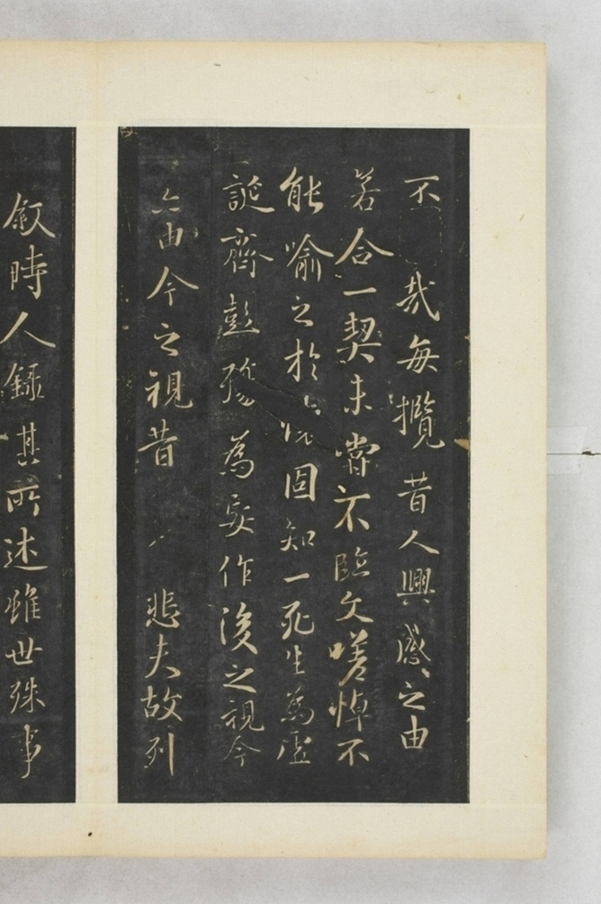 不哉每攬昔人興感之由
若合一契未嘗不臨文嗟悼不
能喻之於懷固知一死生為虛
誕齊彭殤為妄作後之視今
亦由今之視昔悲夫故列
叙時人録其所述雖世殊事